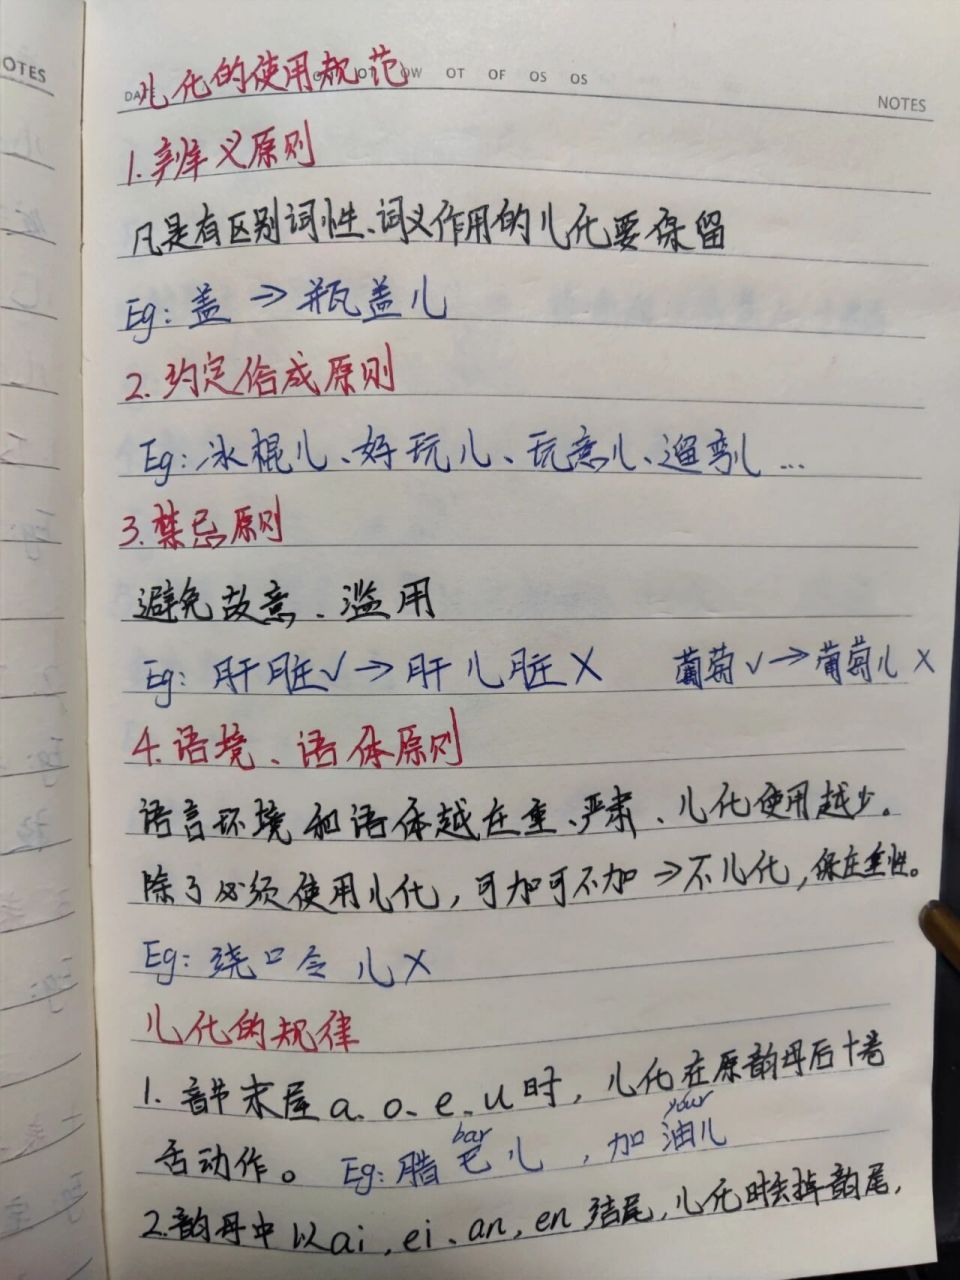 OTES
DA OW OT OF OS OS
NOTES
儿化的使用规范
1.辨义原则
凡是有区别词性、词义作用的儿化要保留
Eg:盖→瓶盖儿
2.约定俗成原则
Eg:冰棍儿、好玩儿、玩意儿、遛弯儿...
3.禁忌原则
避免故意、滥用
Eg:肝脏√→肝儿脏X 葡萄√→葡萄儿X
4.语境、语体原则
语言环境和语体越庄重、严肃、儿化使用越少。
除了必须使用儿化,可加可不加→不儿化,保庄重性。
Eg:绕口令儿X
儿化的规律
1.音节末尾a、o、e、u时,儿化在原韵母后+卷
bar your
舌动作。Eg:腊巴儿,加油儿
2.韵母中以ai,ei、an,en结尾,儿化时去掉韵尾,